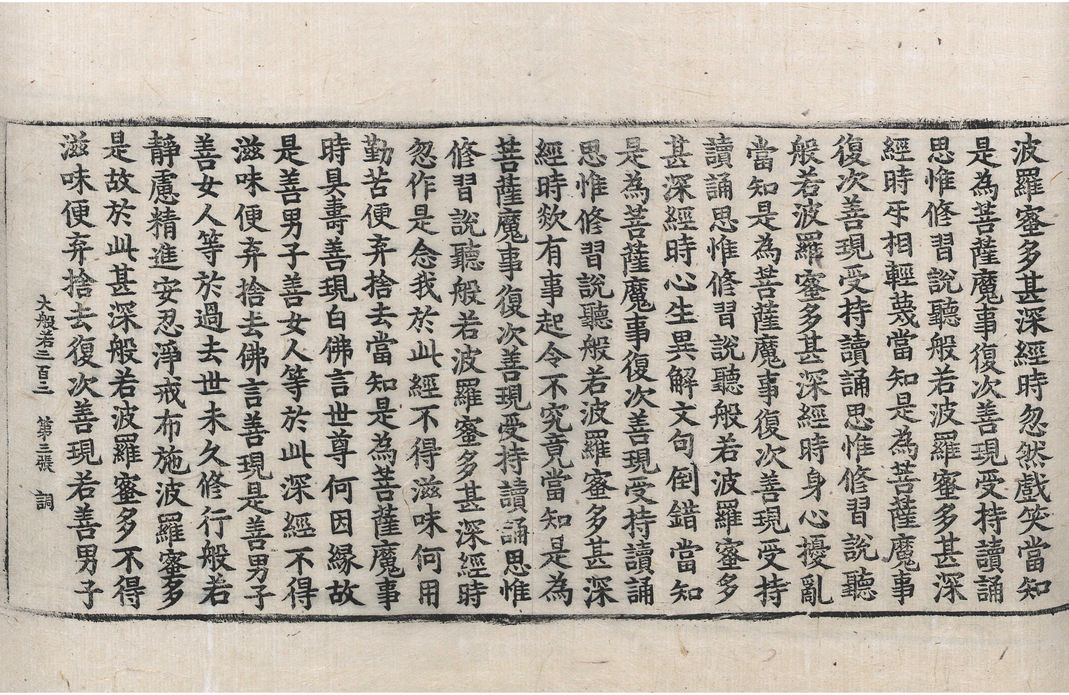 波羅蜜多甚深經時忽然戲笑當知
是為菩薩魔事復次善現受持讀誦
思惟修習說聽般若波羅蜜多甚深
經時𤓰相輕蔑當知是為菩薩魔事
復次善現受持讀誦思惟修習說聽
般若波羅蜜多甚深經時身心擾亂
當知是為菩薩魔事復次善現受持
讀誦思惟修習說聽般若波羅蜜多
甚深經時心生異解文句倒錯當知
是為菩薩魔事復次善現受持讀誦
思惟修習說聽般若波羅蜜多甚深
經時欻有事起令不究竟當知是為
菩薩魔事復次善現受持讀誦思惟
修習說聽般若波羅蜜多甚深經時
忽作是念我於此經不得滋味何用
勤苦便弃捨去當知是為菩薩魔事
時具壽善現白佛言世尊何因緣故
是善男子善女人等於此深經不得
滋味便弃捨去佛言善現是善男子
善女人等於過去世未久修行般若
靜慮精進安忍淨戒布施波羅蜜多
是故於此甚深般若波羅蜜多不得
滋味便弃捨去復次善現若善男子
大般若三百三 第三張 調